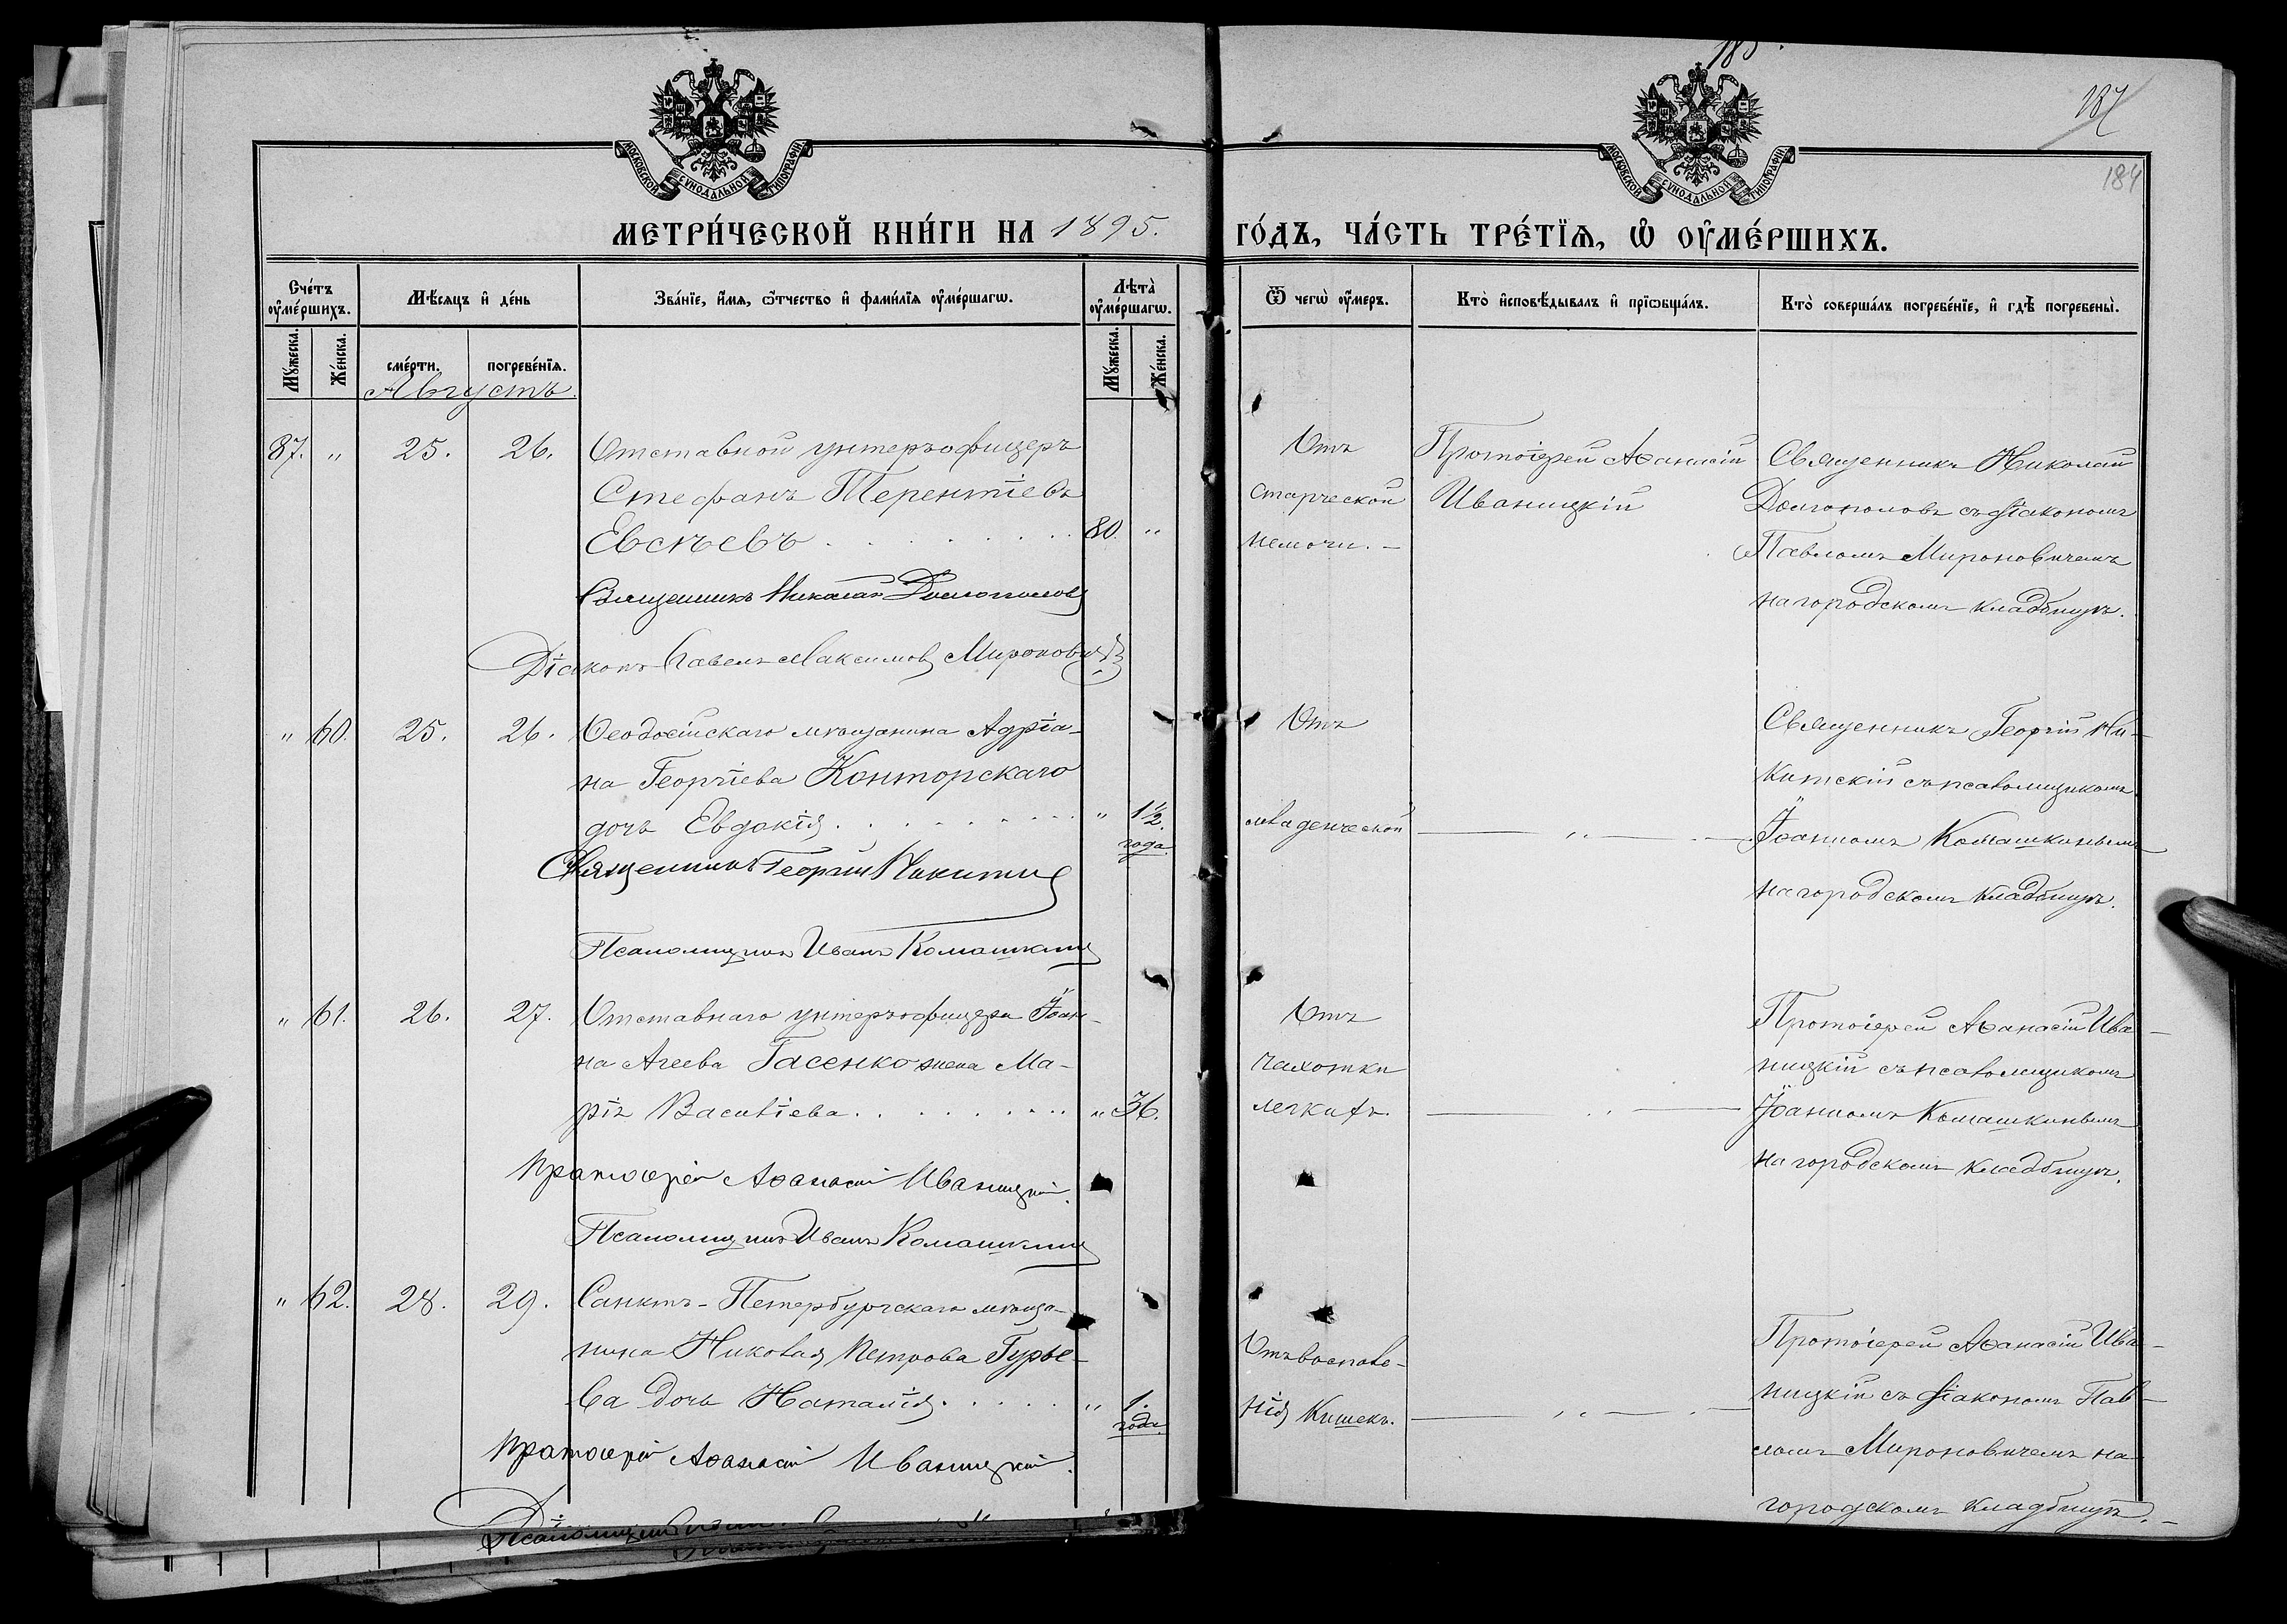 185.
187
184
МОСКОВСКОЙ СУНОДАЛЬНОЙ ТИПОГРАФІИ
МОСКОВСКОЙ СУНОДАЛЬНОЙ ТИПОГРАФІИ
МЕТРИ́ЧЕСКОЙ КНИ́ГИ НА 1895. ГО́ДЪ, ЧА́СТЬ ТРЕ́ТЇѦ, Ѡ҆ ОУ҆МЕ́РШИХЪ.
Сче́тъ оу҆ме́ршихъ.
Мѣ́сяцъ и҆ де́нь
Зва́нїе, и҆́мя, ѻ҆́тчество и҆ фами́лїя оу҆ме́ршагѡ.
Лѣ́та оу҆ме́ршагѡ.
Ѿ чегѡ̀ оу҆́меръ.
Кто̀ и҆сповѣ́дывалъ и҆ прїѡбща́лъ.
Кто̀ соверша́лъ погребе́нїе, и҆ гдѣ̀ погребены̀.
Му́жеска. Же́нска. сме́рти. погребе́нїя. Му́жеска. Же́нска.
Августъ.
87. " 25. 26. Отставной унтеръ-офицеръ
Стефанъ Терентіевъ
Евсѣевъ 80. "
Священникъ Николай Долгополовъ
Діаконъ Павелъ Максимовъ Мироновичъ
Отъ
старческой
немочи.
Протоіерей Аѳанасій
Иваницкій
Священникъ Николай
Долгополовъ съ діакономъ
Павломъ Мироновичемъ
на городскомъ кладбищѣ.
" 60. 25. 26. Ѳеодосійскаго мѣщанина Адріа-
на Георгіева Конторскаго
дочь Евдокія " 1½ года
Священникъ Георгій Никитскій
Псаломщикъ Иванъ Комашкинъ
Отъ
младенческой — " —
Священникъ Георгій Ни-
китскій съ псаломщикомъ
Іоанномъ Комашкинымъ
на городскомъ кладбищѣ.
" 61. 26. 27. Отставнаго унтеръ-офицера Іоан-
на Агеева Гасенко жена Ма-
рія Василіева " 36.
Протоіерей Аѳанасій Иваницкій.
Псаломщикъ Иванъ Комашкинъ
Отъ
чахотки
легкихъ. — " —
Протоіерей Аѳанасій Ива-
ницкій съ псаломщикомъ
Іоанномъ Комашкинымъ
на городскомъ кладбищѣ.
" 62. 28. 29. Санктъ-Петербургскаго мѣща-
нина Николая Петрова Гурье-
ва дочь Наталія " 1. года
Протоіерей Аѳанасій Иваницкій.
Отъ воспале-
нія кишекъ. — " —
Протоіерей Аѳанасій Ива-
ницкій съ діакономъ Пав-
ломъ Мироновичемъ на
городскомъ кладбищѣ.
Псаломщикъ